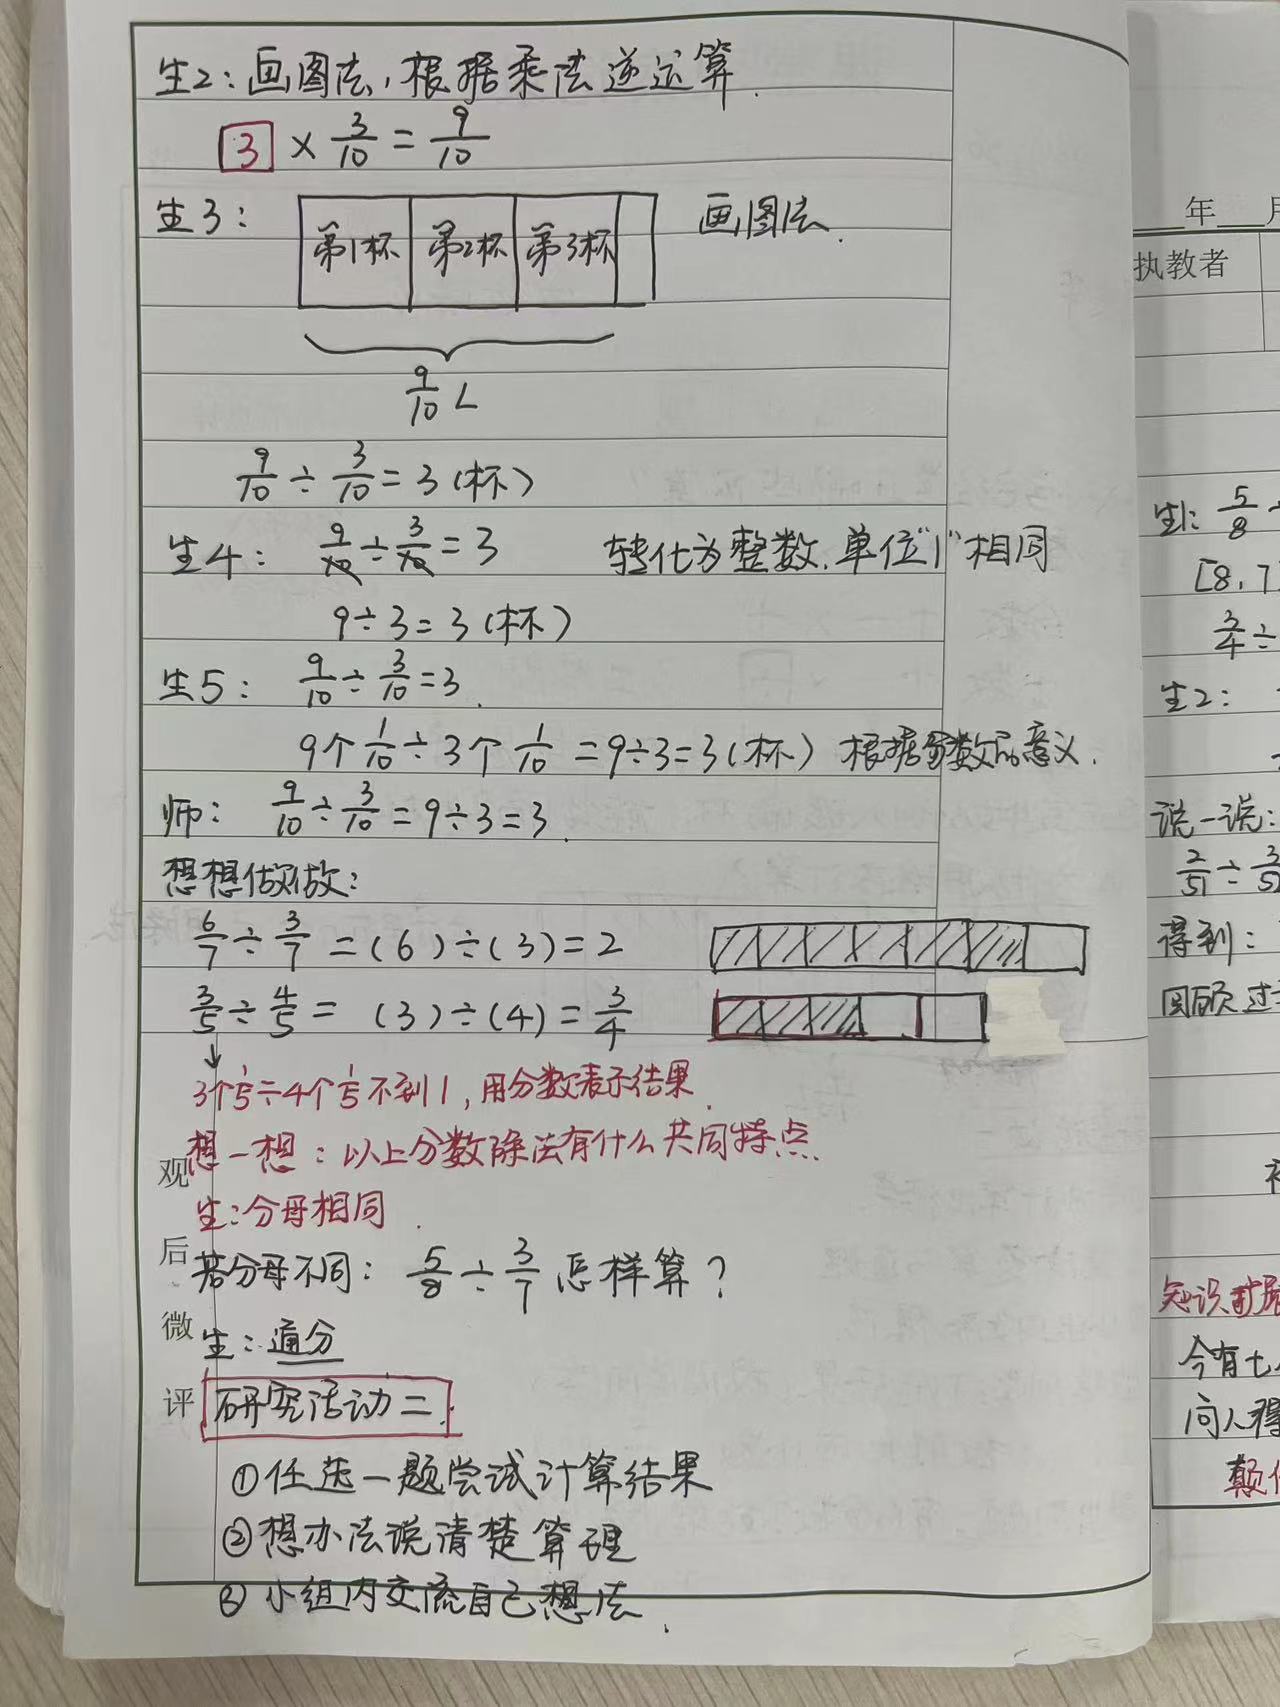 生2：画图法，根据乘法逆运算.
3 × 3/10 = 9/10
生3： 第1杯 第2杯 第3杯 画图法.
9/10 L
9/10 ÷ 3/10 = 3（杯）
生4： 9/10 ÷ 3/10 = 3 转化为整数.单位"1"相同
9÷3=3（杯）
生5： 9/10 ÷ 3/10 = 3.
9个1/10 ÷ 3个1/10 = 9÷3=3（杯） 根据分数的意义.
师： 9/10 ÷ 3/10 = 9÷3=3.
想想做做：
6/7 ÷ 3/7 =（6）÷（3）=2
3/5 ÷ 4/5 = （3）÷（4）= 3/4
↓
3个1/5÷4个1/5不到1，用分数表示结果.
想一想：以上分数除法有什么共同特点.
生：分母相同.
若分母不同： 5/8 ÷ 3/7 怎样算？
生：通分
研究活动二.
①任选一题尝试计算结果
②想办法说清楚算理
③小组内交流自己想法.
观后微评
年 月
执教者
生1： 5/8
[8，7]
3/4 ÷
生2：
说一说：
2/51 ÷ 3/51
得到：
回顾过
知识扩展
今有七人
问人得